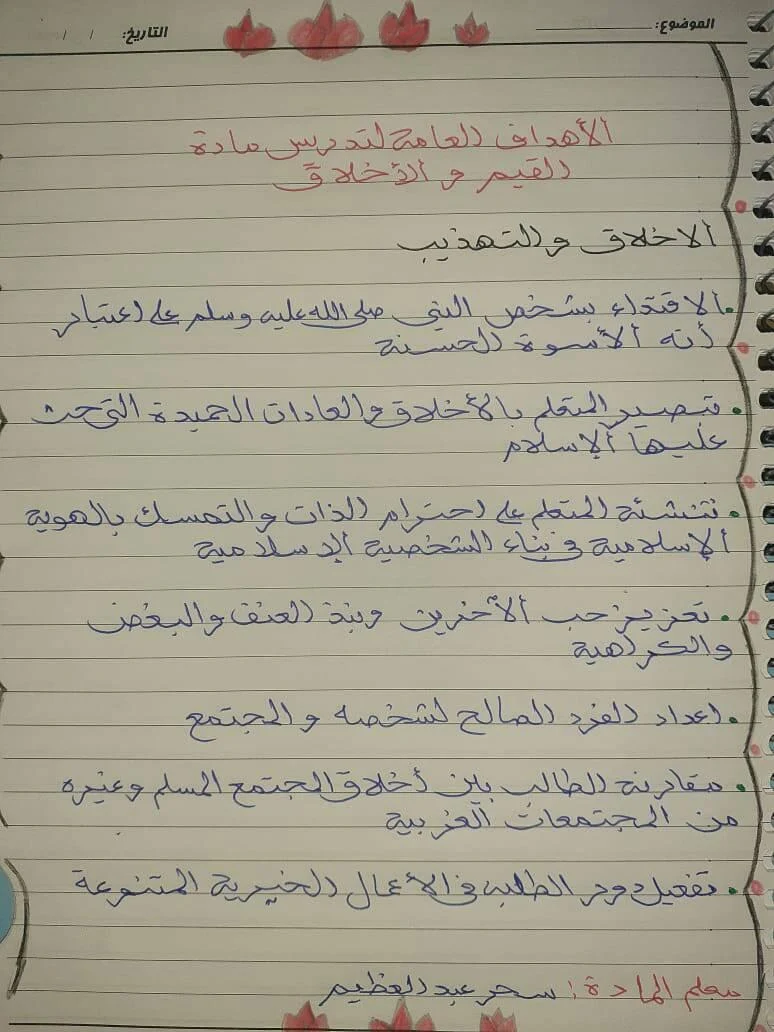 الموضوع: التاريخ: / /
الأهداف العامة لتدريس مادة
القيم و الأخلاق
الاخلاق والتهذيب
. الاقتداء بشخص النبي صلى الله عليه وسلم على اعتبار
أنه الأسوة الحسنة
. تبصير المتعلم بالأخلاق والعادات الحميدة التي حث
عليها الإسلام
. تنشئة المتعلم على احترام الذات والتمسك بالهوية
الإسلامية في بناء الشخصية الإسلامية
. تعزيز حب الأخرين ونبذ العنف والبغض
والكراهية
. اعداد الفرد الصالح لشخصه والمجتمع
. مقارنة الطالب بين أخلاق المجتمع المسلم وغيره
من المجتمعات الغربية
. تفعيل دور الطلبه في الأعمال الخيرية المتنوعة
معلم المادة: سحر عبد العظيم